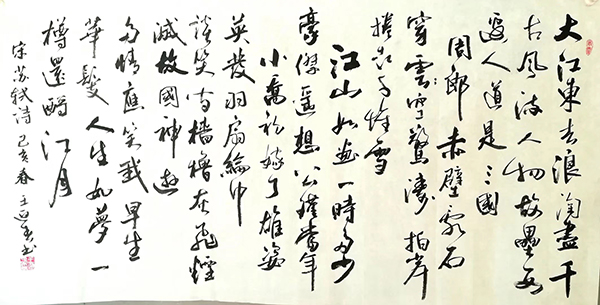 大江東去浪淘盡千
古風流人物故壘西
邊人道是三國
周郎赤壁亂石
穿雲空驚濤拍岸
捲起千堆雪
江山如畫一時多少
豪傑遥想公瑾當年
小喬初嫁了雄姿
英發羽扇綸巾
談笑间檣櫓灰飛煙
滅故國神遊
多情應笑我早生
華髮人生如夢一
樽還酹江月
宋苏軾詩己亥春王